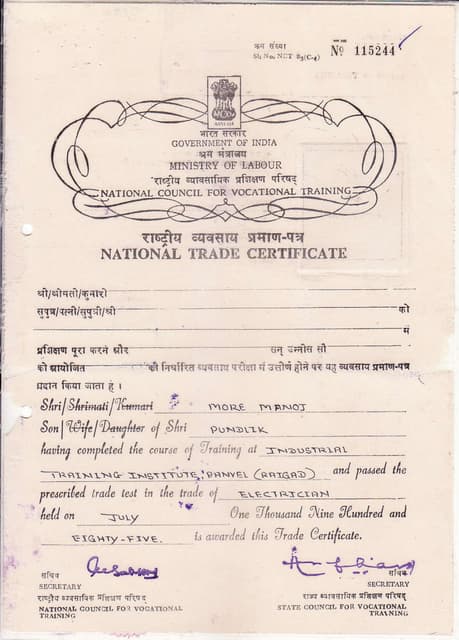 क्रम संख्या
Sl. No. NCT S3(C-4) № 115244
भारत सरकार
GOVERNMENT OF INDIA
श्रम मंत्रालय
MINISTRY OF LABOUR
राष्ट्रीय व्यावसायिक प्रशिक्षण परिषद्
NATIONAL COUNCIL FOR VOCATIONAL TRAINING
राष्ट्रीय व्यवसाय प्रमाण-पत्र
NATIONAL TRADE CERTIFICATE
श्री/श्रीमती/कुमारी
सुपुत्र/पत्नी/सुपुत्री/श्री को
में
प्रशिक्षण पूरा करने और सन् उन्नीस सौ
को आयोजित की निर्धारित व्यवसाय परीक्षा में उत्तीर्ण होने पर यह व्यवसाय प्रमाण-पत्र
प्रदान किया जाता है ।
Shri/Shrimati/Kumari MORE MANOJ
Son/Wife/Daughter of Shri PUNDLIK
having completed the course of Training at INDUSTRIAL
TRAINING INSTITUTE, PANVEL (RAIGAD) and passed the
prescribed trade test in the trade of ELECTRICIAN
held on JULY One Thousand Nine Hundred and
EIGHTY-FIVE. is awarded this Trade Certificate.
सचिव
SECRETARY
राष्ट्रीय व्यावसायिक प्रशिक्षण परिषद्
NATIONAL COUNCIL FOR VOCATIONAL
TRAINING
सचिव
SECRETARY
राज्य व्यावसायिक प्रशिक्षण परिषद्
STATE COUNCIL FOR VOCATIONAL
TRAINING